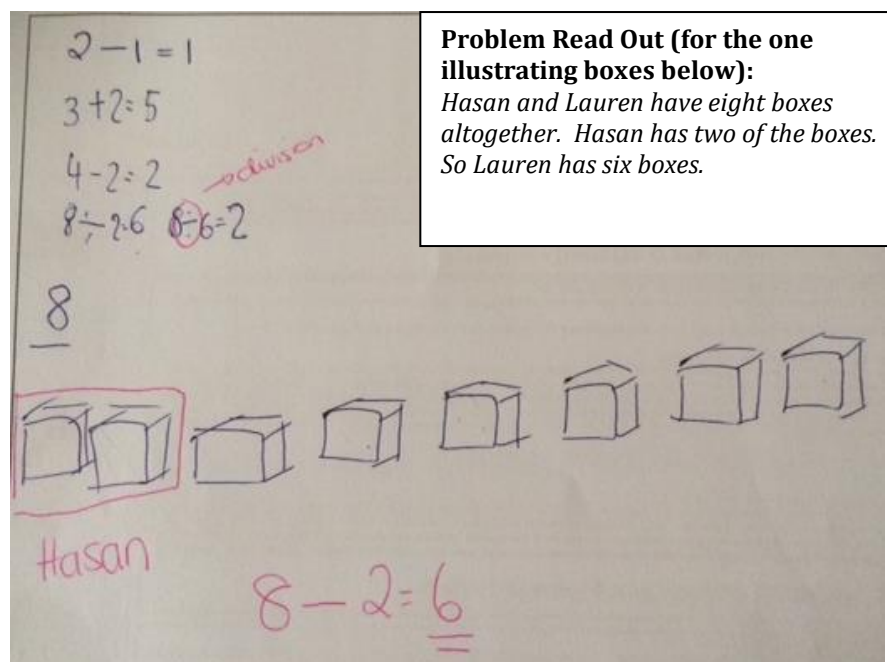 2 - 1 = 1
3 + 2 = 5
4 - 2 = 2
→ division
8 ÷ 2 = 6 8 ÷ 6 = 2
8
Hasan
8 - 2 = 6
Problem Read Out (for the one
illustrating boxes below):
Hasan and Lauren have eight boxes
altogether. Hasan has two of the boxes.
So Lauren has six boxes.